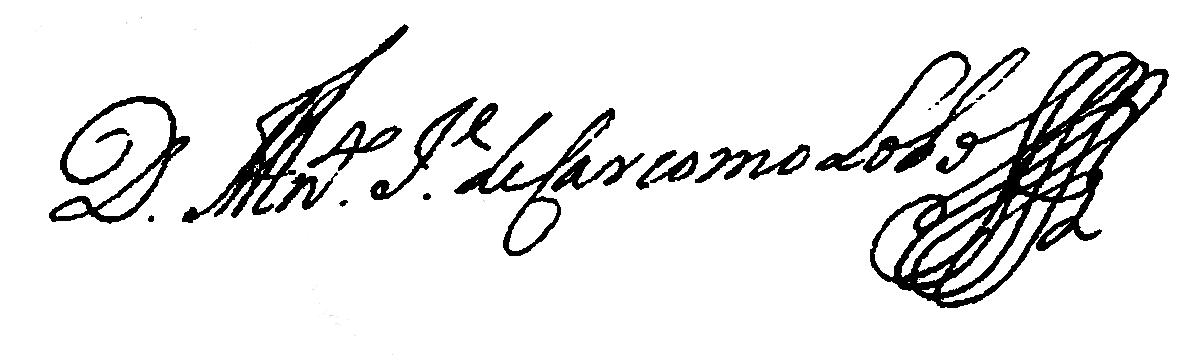 D. Antº. Jᵉ. de Carcomo Lobo